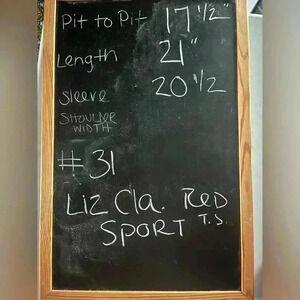 Pit to Pit 17 1/2"
Length 21"
Sleeve 20 1/2
SHOULDER
WIDTH
# 31
Liz Cla. RED
SPORT T.S.